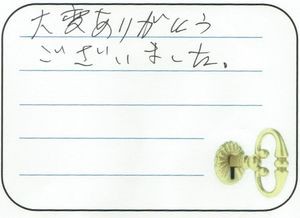 大変ありがとう
ございました。